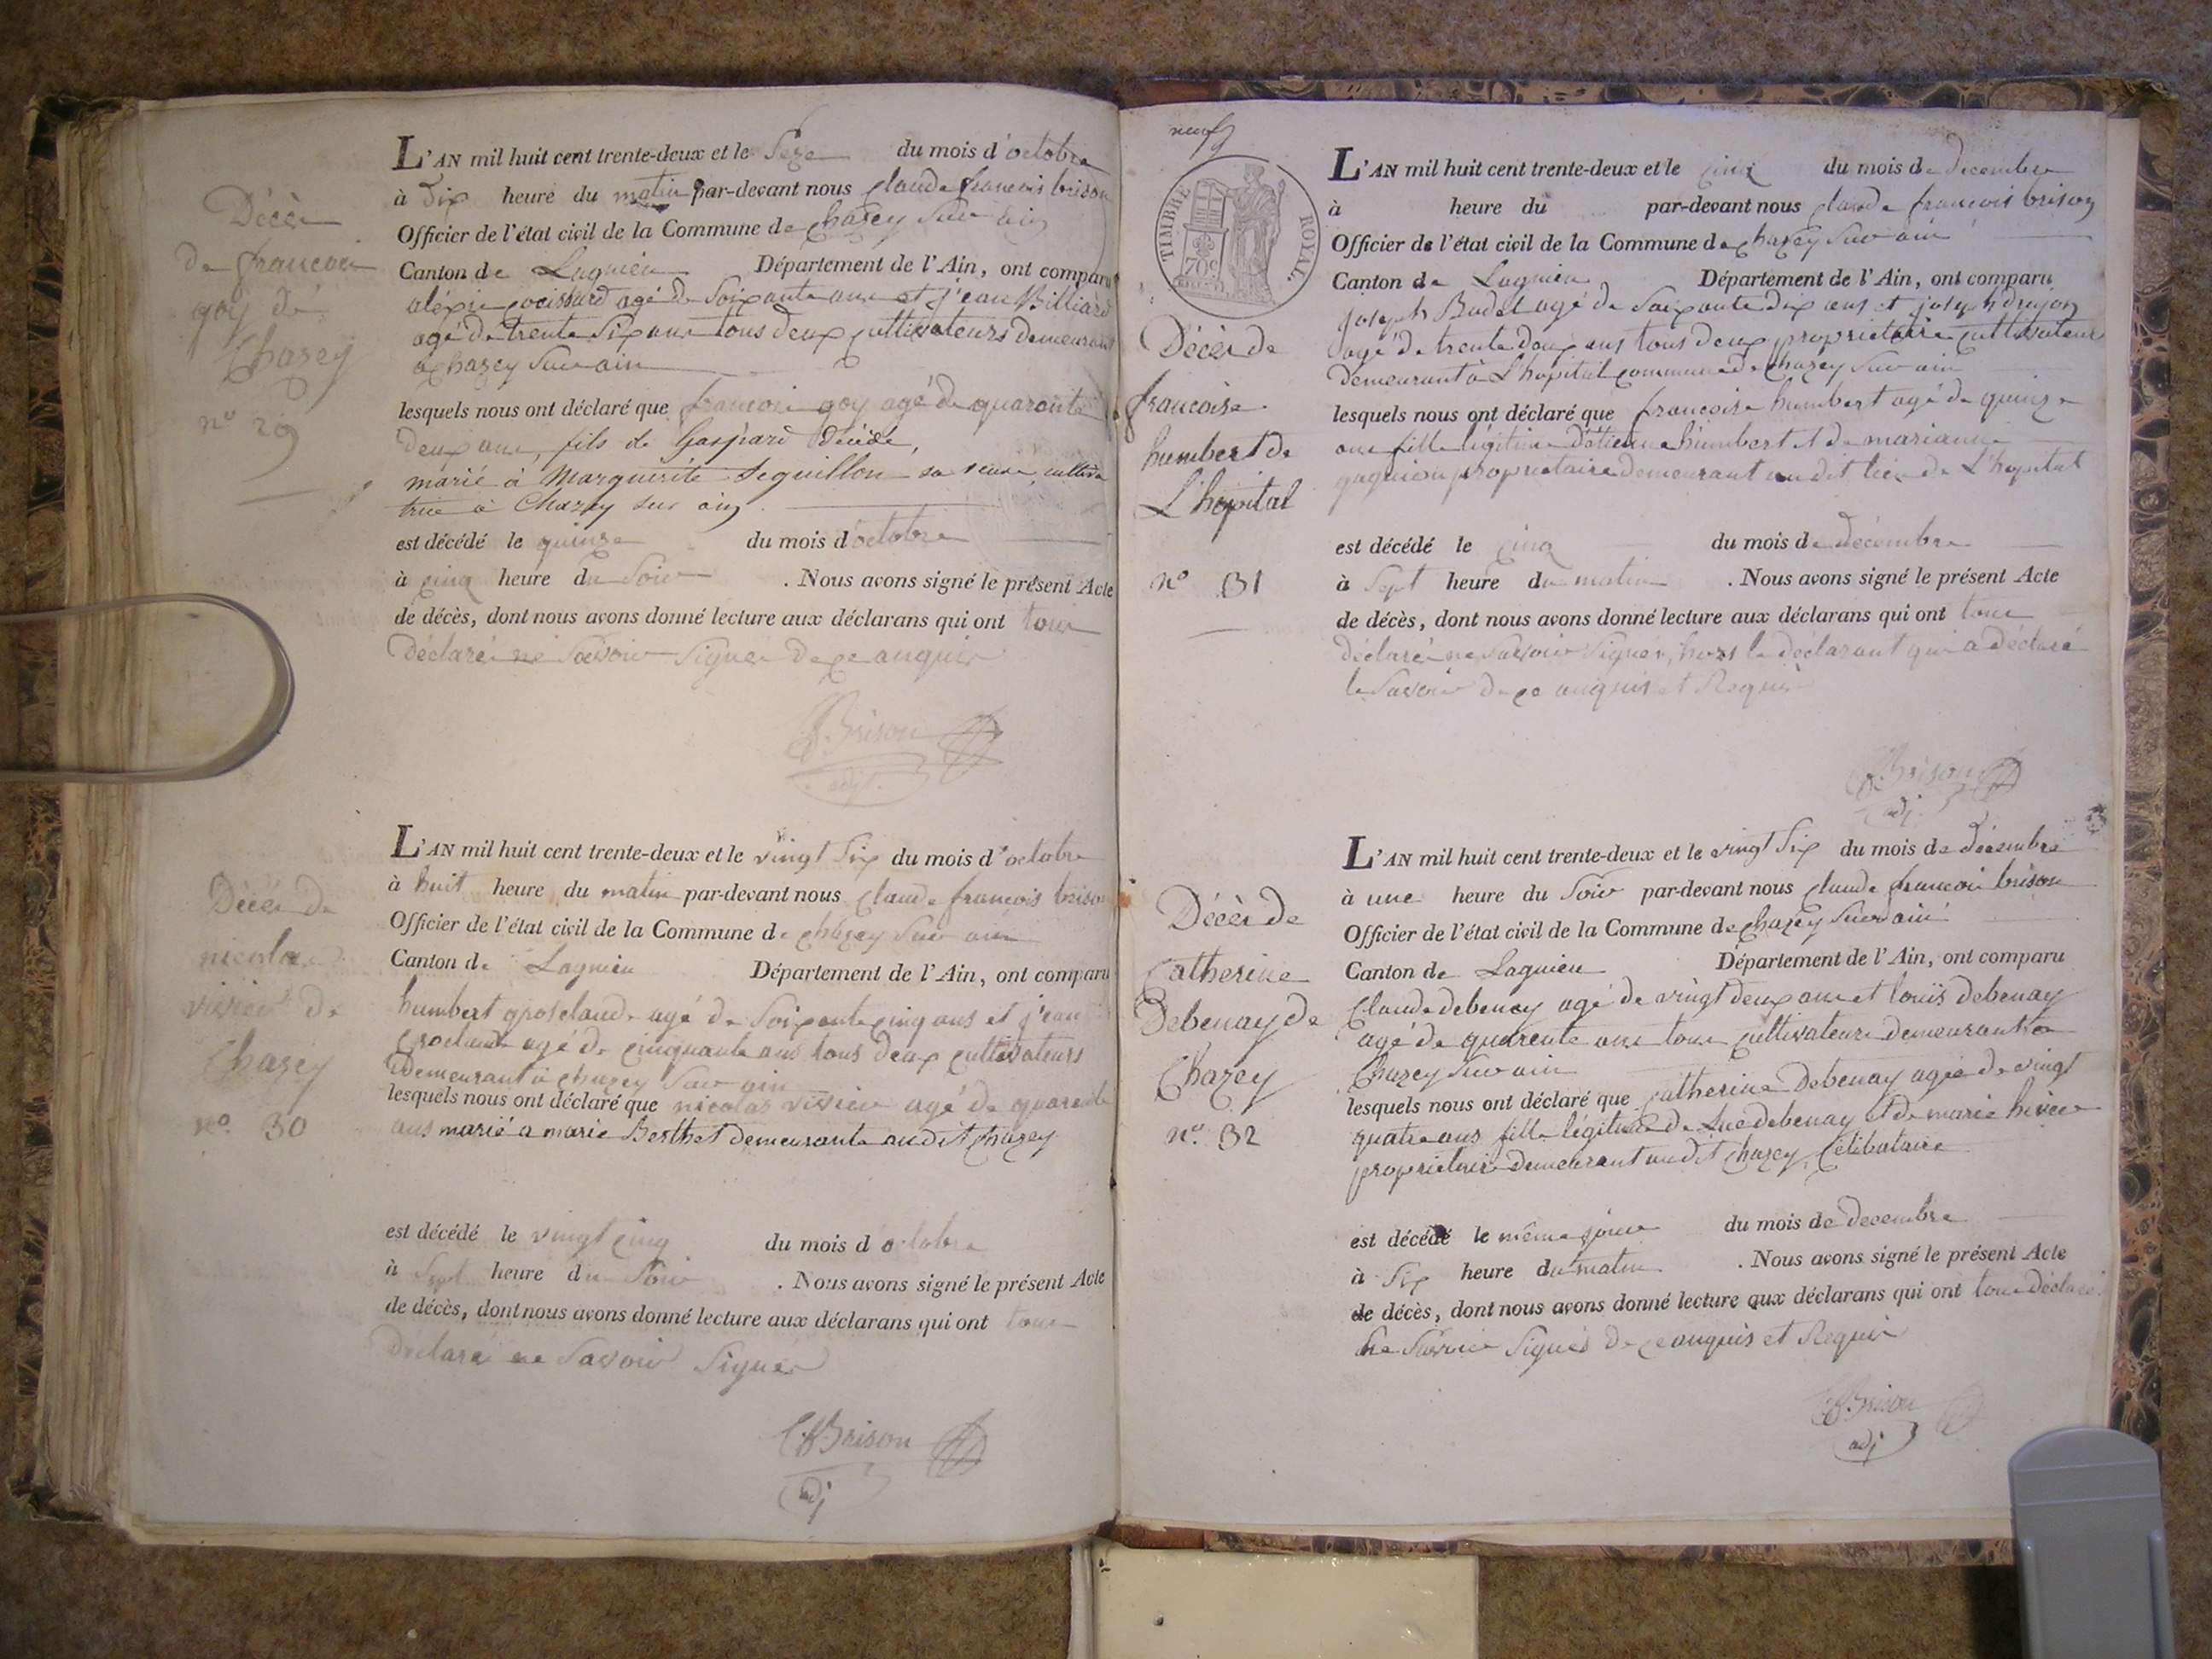 Décès
de francois
goy de
Chazey
nº 29
L'AN mil huit cent trente-deux et le Seze du mois d'octobre
à dix heure du matin par-devant nous claude francois brison
Officier de l'état civil de la Commune de chazey Sur ain
Canton de Lagnieu Département de l'Ain, ont comparu
agé de Soixante ans et j'ean Billiard
agé de trente Six ans tous deux cultivateurs demeurant
a chazey Sur ain
lesquels nous ont déclaré que francois goy agé de quarante
deux ans, fils de Gaspard décédé,
marié à Marguerite Seguillon sa veuve, cultiva
trice à Chazey sur ain.
est décédé le quinze du mois d'octobre
à cinq heure du Soir . Nous avons signé le présent Acte
de décès, dont nous avons donné lecture aux déclarans qui ont tous
déclaré ne Savoir Signer de ce anquis
Brison
adj.
Décès de
nicolas
vivier de
Chazey
nº 30
L'AN mil huit cent trente-deux et le vingt Six du mois d'octobre
à huit heure du matin par-devant nous claude francois brison
Officier de l'état civil de la Commune de chazey Sur ain
Canton de Lagnieu Département de l'Ain, ont comparu
humbert grosclaude agé de Soixante cinq ans et j'ean
agé de cinquante ans tous deux cultivateurs
demeurant à chazey Sur ain
lesquels nous ont déclaré que nicolas vivier agé de quarante
ans marié a marie Berthet demeurante audit chazey
est décédé le vingt cinq du mois d octobre
à Sept heure du Soir . Nous avons signé le présent Acte
de décès, dont nous avons donné lecture aux déclarans qui ont tous
déclaré ne Savoir Signer
CfBrison
adj
neuf
TIMBRE ROYAL
70c
Décès de
francoise
humbert de
L'hopital
nº 31
L'AN mil huit cent trente-deux et le cinq du mois de décembre
à heure du par-devant nous claude francois brison
Officier de l'état civil de la Commune de chazey Sur ain
Canton de Lagnieu Département de l'Ain, ont comparu
joseph Budet agé de Soixante dix ans et joseph druyon
agé de trente deux ans tous deux proprietaire cultivateur
demeurant à L'hopital commune de chazey Sur ain
lesquels nous ont déclaré que francoise humbert agé de quinze
ans fille légitime d'étienne humbert et de marianne
gagnieu proprietaire demeurant au dit lieu de L'hopital
est décédé le cinq du mois de décembre
à Sept heure du matin . Nous avons signé le présent Acte
de décès, dont nous avons donné lecture aux déclarans qui ont tous
déclaré ne savoir Signer, hors le déclarant qui a déclaré
le Savoir de ce anquis et Requis
Brison
adj.
Décès de
Catherine
Debenay de
Chazey
nº 32
L'AN mil huit cent trente-deux et le vingt Six du mois de décembre
à une heure du Soir par-devant nous claude francois brison
Officier de l'état civil de la Commune de chazey Sur ain
Canton de Lagnieu Département de l'Ain, ont comparu
Claude debenay agé de vingt deux ans et louis debenay
agé de quarente ans tous cultivateurs demeurant a
Chazey Sur ain
lesquels nous ont déclaré que catherine Debenay agée de vingt
quatre ans fille légitime de Luc debenay et de marie
proprietaire demeurant audit chazey, Célibataire
est décédé le même jour du mois de décembre
à Six heure du matin . Nous avons signé le présent Acte
de décès, dont nous avons donné lecture aux déclarans qui ont tous déclaré
ne Savoir Signés de ce anquis et Requis
CfBrison
adj